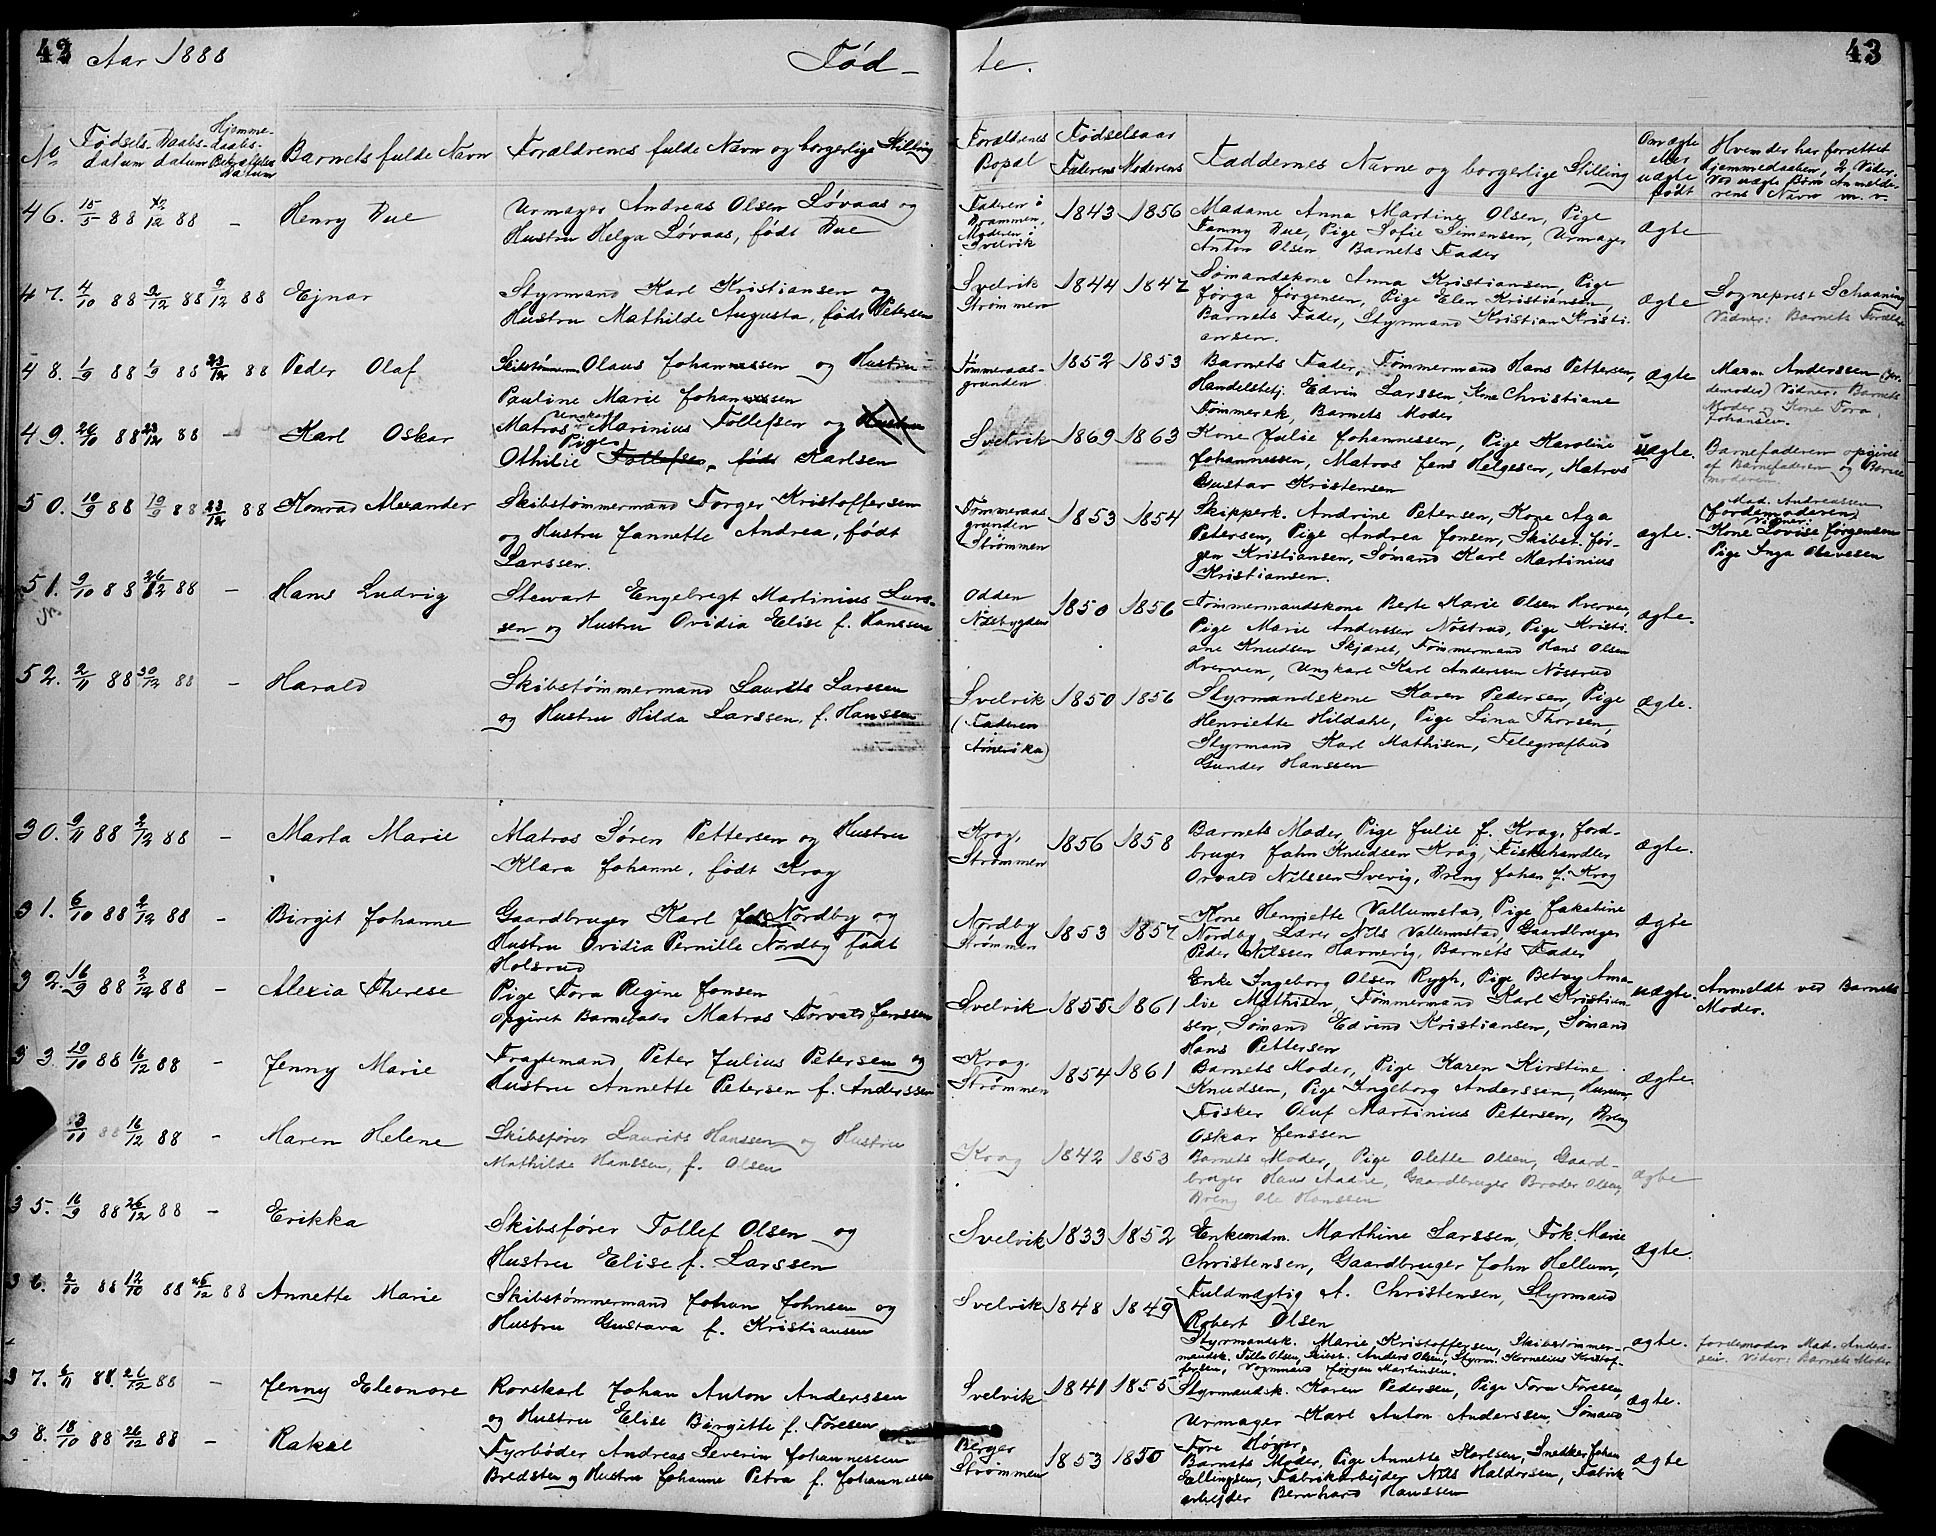 42 Aar 1888 Fød-
te. 43
No Fødsels-datum Daabs-datum Hjemme-daabs-Bekræftelses Datum Barnets fulde Navn Forældrenes fulde Navn og borgerlige Stilling
Forældrenes Bopæl Fødselsaar Faderens Moderens Faddernes Navne og borgerlige Stilling Om ægte eller uægte født Hvem der har forrettet Hjemmedaaben, 2 Vidner. Ved uægte Børn Anmelderens Navn m. v.
46. 15/5 88 12/12 88 - Henry Due
Urmager Andreas Olsen Løvaas og
Hustru Helga Løvaas, født Due
Faderen i
Drammen,
Moderen i
Svelvik
1843 1856
Madame Anna Martine Olsen, Pige
Fanny Due, Pige Sofie Simensen, Urmager
Anton Olsen Barnets Fader
ægte
47. 4/10 88 9/12 88 9/12 88 Ejnar
Styrmand Karl Kristiansen og
Hustru Mathilde Augusta, født Petersen
Svelvik
Strømmen
1844 1847
Sømandskone Anna Kristiansen, Pige
Jørga Jørgensen, Pige Elen Kristiansen,
Barnets Fader, Styrmand Kristian Kristi-
ansen.
ægte
Sogneprest Schaaning
Vidner: Barnets Forældre
48. 1/9 88 1/9 88 23/12 88 Peder Olaf
Skibstømmerm Olaus Johannessen og Hustru
Pauline Marie Johannessen
Tømmeraas-
grunden
1852 1853
Barnets Fader, Tømmermand Hans Pettersen,
Handelsbetj. Edvin Larssen, Kone Christiane
Tømmerek, Barnets Moder
ægte
Mad. Anderssen (Jor-
demoder) Vidner: Barnets
Moder og Kone Tora
Johansen.
49. 26/10 88 23/12 88 - Karl Oskar
Matros Ungkarl Marinius Tollefsen og Hustru
Pige
Othilie Tollefsen, født Karlsen
Svelvik 1869 1863
Kone Julie Johannessen, Pige Karoline
Johannessen, Matros Jens Helgesen, Matros
Gustav Kristensen
uægte.
Barnefaderen opgivet
af Barnefaderen og Barne-
moderen
50. 19/9 88 19/9 88 23/12 88 Konrad Alexander
Skibstømmermand Torger Kristoffersen
og Hustru Jannette Andrea, født
Larssen.
Tømmeraas
grunden
Strømmen
1853 1854
Skipperk. Andrine Petersen, Kone Aga
Petersen, Pige Andrea Jonsen, Skibst. Jør-
gen Kristiansen, Sømand Karl Martinius
Kristiansen.
ægte.
Mad. Andreassen
(Jordemoderen)
Vidner:
Kone Lovise Jørgensen
Pige Inga Olavesen
51. 9/10 88 26/12 88 - Hans Ludvig
Stewart Engebregt Martinius Lars-
sen og Hustru Ovidia Elise f. Hanssen
Odden
Nøsbygden
1850 1856
Tømmermandskone Berte Marie Olsen Hverven,
Pige Marie Anderssen Nøstrud, Pige Kristi-
ane Knudsen Skjæret, Tømmermand Hans Olsen
Hverven, Ungkarl Karl Andersen Nøstrud
ægte.
52. 2/11 88 30/12 88 - Harald
Skibstømmermand Laurits Larssen
og Hustru Hilda Larssen, f. Hanssen
Svelvik
(Faderen
Amerika)
1850 1856
Styrmandskone Karen Pedersen, Pige
Henriette Hildahl, Pige Lina Thorsen,
Styrmand Karl Mathisen, Telegrafbud
Gunder Hanssen
ægte.
30. 9/11 88 2/12 88 - Marta Marie
Matros Søren Pettersen og Hustru
Klara Johanne, født Krog
Krog,
Strømmen
1856 1858
Barnets Moder, Pige Julie J. Krog, Jord-
bruger John Knudsen Krog, Fiskehandler
Osvald Nilssen Svervig, Dreng Johan J. Krog
ægte.
31. 6/10 88 2/12 88 - Birgit Johanne
Gaardbruger Karl Nordby og
Hustru Ovidia Pernille Nordby født
Holsrud
Nordby
Strømmen
1853 1857
Kone Henriette Vallumstad, Pige Jakobine
Nordby, Lærer Nils Vallumstad, Gaardbruger
Peder Nilssen Havnevig, Barnets Fader
ægte
32. 16/9 88 2/12 88 - Alexia Therese
Pige Tora Regine Jonsen
Opgivet Barnefader Matros Torvald Jenssen
Svelvik 1855 1861
Enke Ingeborg Olsen Rygh, Pige Betsy Ama-
lie Mathisen, Tømmermand Karl Kristian-
sen, Sømand Edvind Kristiansen, Sømand
Hans Pettersen
uægte.
Anmeldt ved Barnets
Moder.
33 19/10 88 16/12 88 - Jenny Marie
Fragtemand Peter Julius Petersen og
Hustru Annette Petersen f. Anderssen
Krog
Strømmen
1854 1861
Barnets Moder, Pige Karen Kirstine
Knudsen, Pige Ingeborg Anderssen, Hurum,
Fisker Oluf Martinius Petersen, Dreng
Oskar Jenssen
ægte.
3/11 88 16/12 88 - Maren Helene
Skibsfører Laurits Hanssen og Hustru
Mathilde Hanssen, f. Olsen
Krog 1842 1853
Barnets Moder, Pige Olette Olsen, Gaard-
bruger Hans Aadne, Gaardbruger Broder Olsen,
Dreng Ole Hanssen
ægte
35. 16/9 88 26/12 88 - Erikka
Skibsfører Tollef Olsen og
Hustru Elise f. Larssen
Svelvik 1833 1852
Enkemdm. Marthine Larssen, Frk. Marie
Christensen, Gaardbruger John Hellum,
Fuldmægtig A. Christensen, Styrmand
Robert Olsen
ægte.
36. 2/10 88 12/10 88 26/12 88 Annette Marie
Skibstømmermand Johan Johnsen og
Hustru Gustava f. Kristiansen
Svelvik 1848 1849
Styrmandsk. Marie Kristoffersen, Skibstømmer-
mandsk. Tilla Olsen, Skibst. Anders Olsen, Styrm. Kornelius Kristof-
fersen, Vognmand Jørgen Martinsen.
ægte.
Jordemoder Mad. Anders-
sen. Vidner: Barnets Moder
37. 6/11 88. 26/12 88 - Jenny Eleonore
Rorskarl Johan Anton Anderssen
og Hustru Elise Birgitte f. Toresen
Svelvik 1841 1855
Styrmandsk. Karen Pedersen, Pige Tora Toresen,
Urmager Karl Anton Anderssen, Sømand
Tore Høyer,
ægte.
38. 18/10 88 26/12 88 - Rakel
Fyrbøder Andreas Severin Johannessen
Bredsten og Hustru Johanne Petra f. Johannessen
Berger
Strømmen
1853 1850
Barnets Moder, Pige Annette Karlsen, Snedker Johan
Ellingsen, Fabrikarbejder Nils Haldorsen, Fabrik
arbejder Bernhard Hanssen
ægte